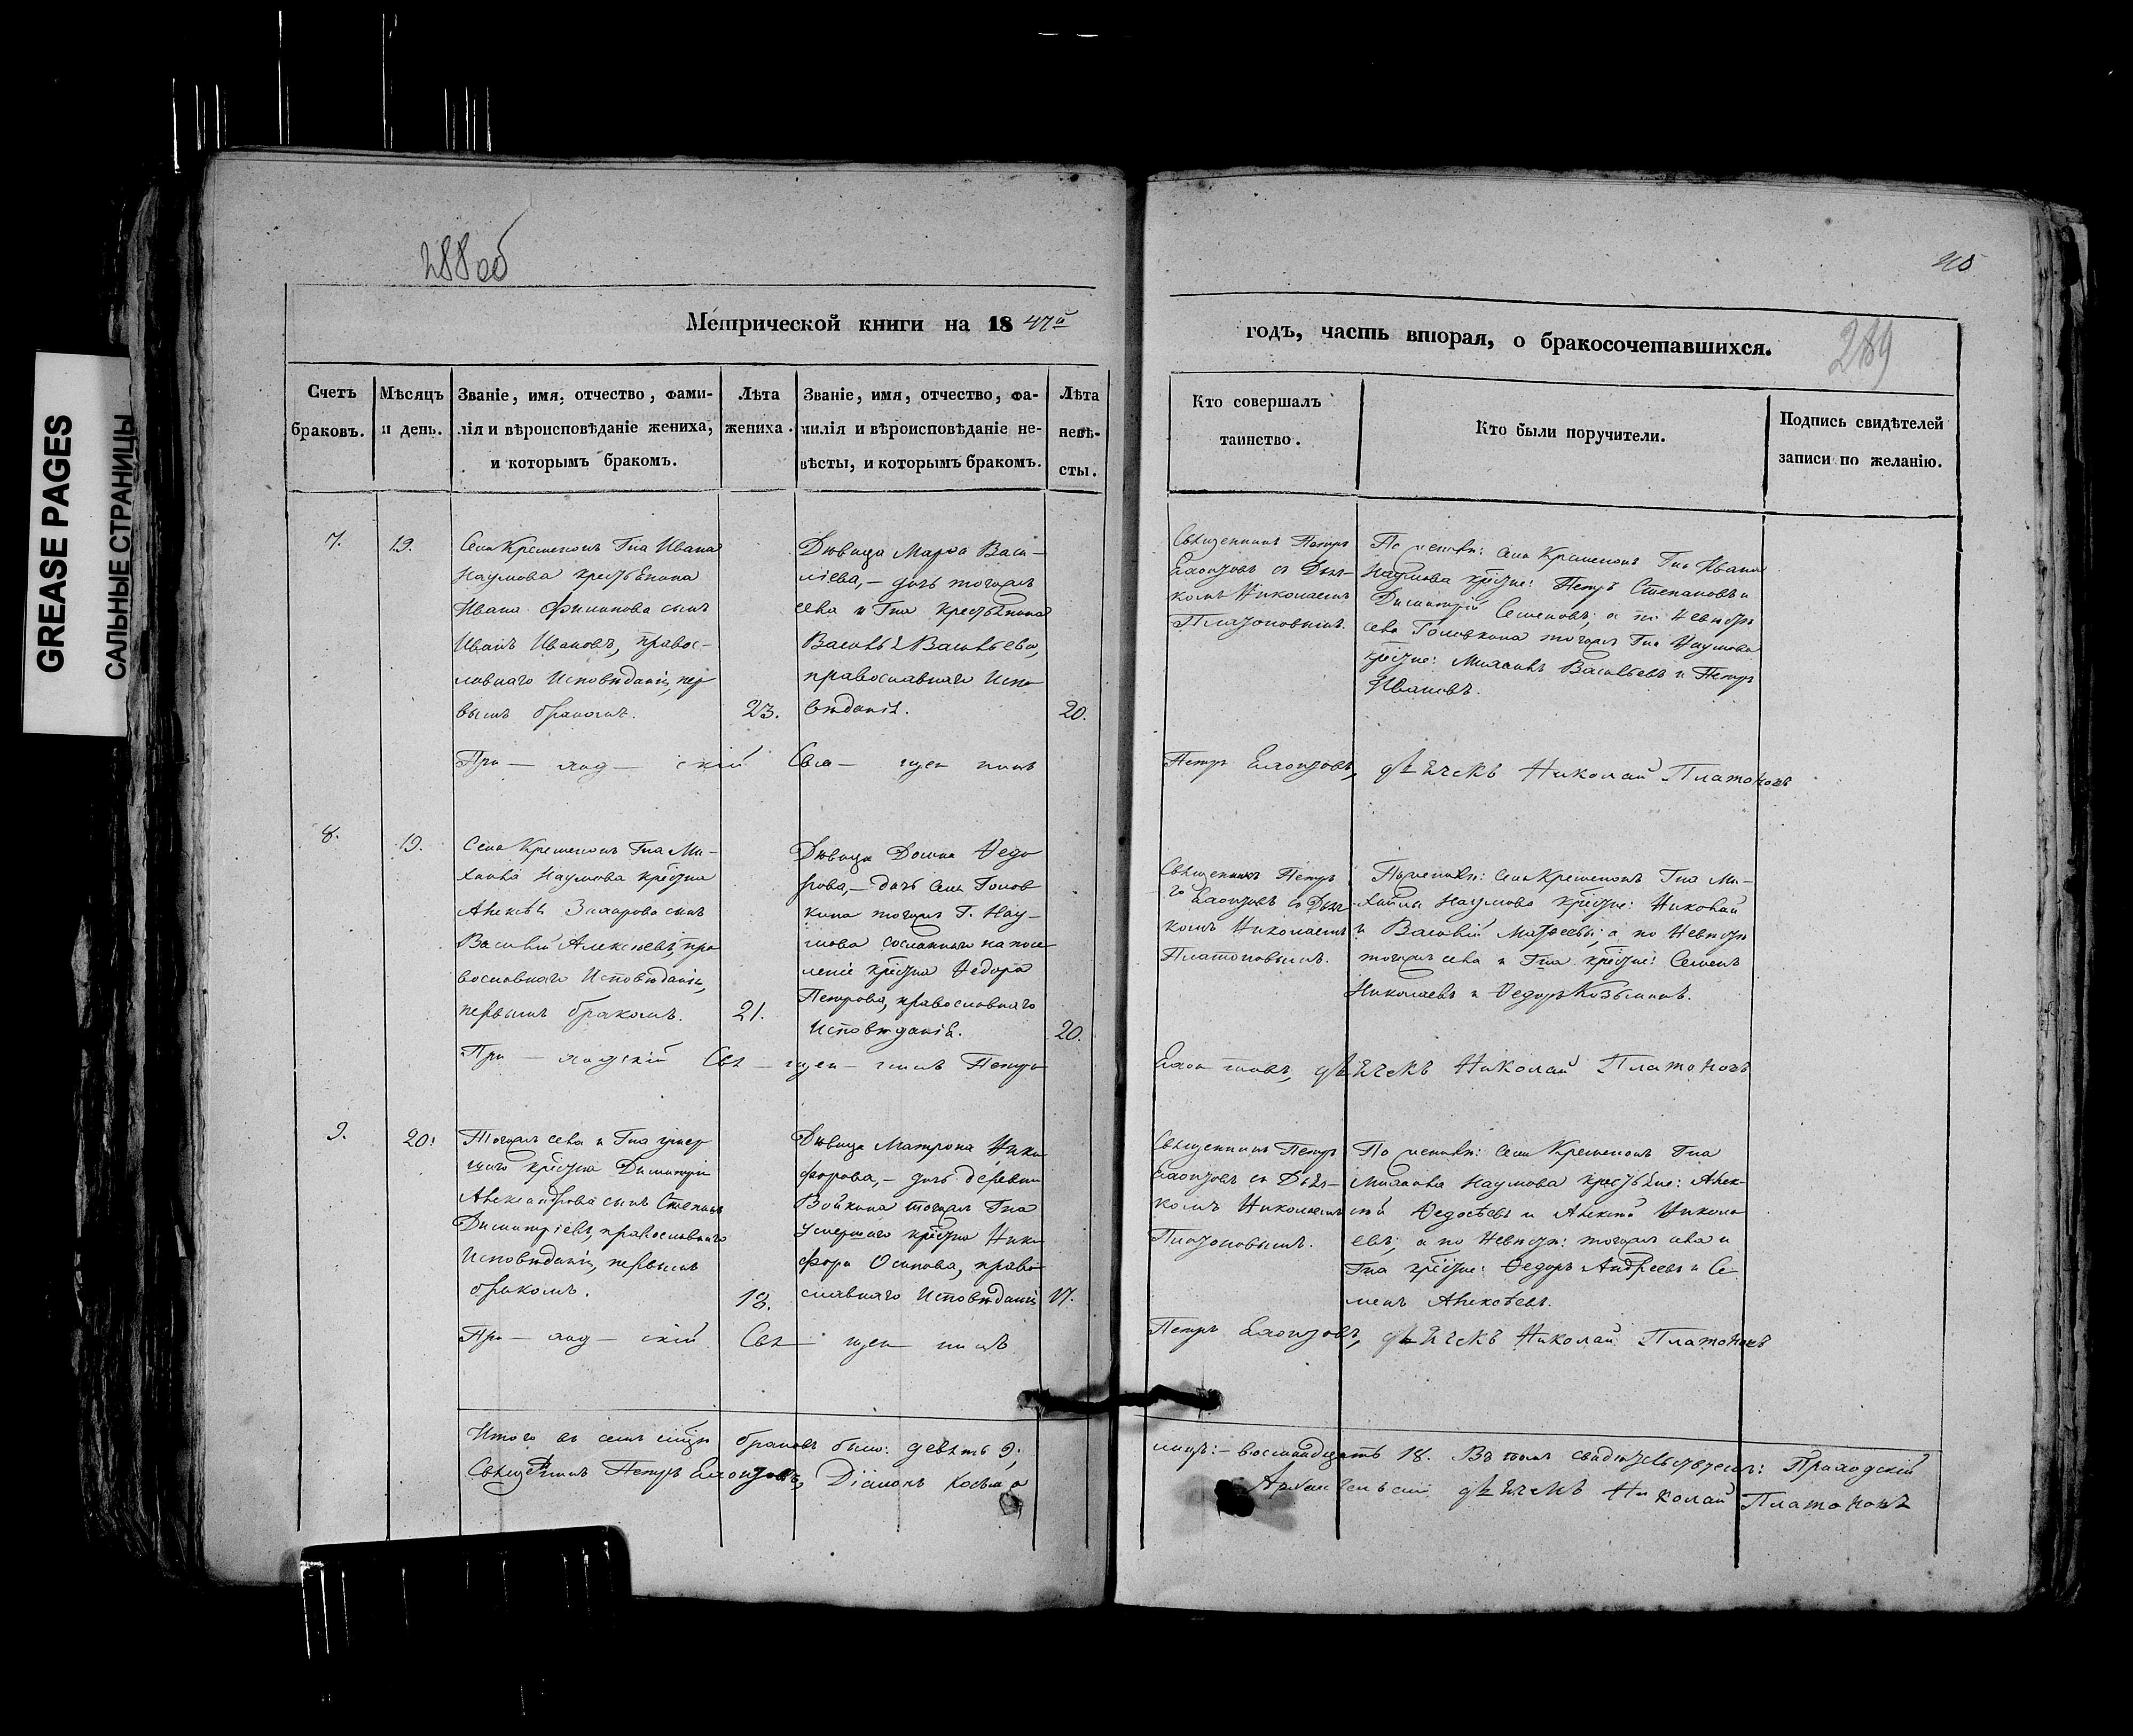 GREASE PAGES
САЛЬНЫЕ СТРАНИЦЫ
288 об
Метрической книги на 1847й
Счетъ браковъ.
Мѣсяцъ и день.
Званіе, имя, отчество, фами-
лія и вѣроисповѣданіе жениха,
и которымъ бракомъ.
Лѣта
жениха.
Званіе, имя, отчество, фа-
милія и вѣроисповѣданіе не-
вѣсты, и которымъ бракомъ.
Лѣта
невѣ-
сты.
7.
19.
Села Кременокъ Гна Ивана
Наумова крестьянина
Ивана Филипова сынъ
Иванъ Ивановъ, правос-
лавнаго Исповѣданія, пер
вымъ бракомъ.
23.
Дѣвица Марѳа Васи-
ліева,- дочь тогожъ
села и Гна крестьянина
Василья Васильева,
православнаго Испо
вѣданія.
20.
При- ход- скій Свя- щен никъ
8.
19.
Села Кременокъ Гна Ми-
хаила Наумова крестна
Алексѣя Захарова сынъ
Василій Алексѣевъ, пра
вославнаго Исповѣданія,
первымъ бракомъ.
21.
Дѣвица Домна Ѳедо
рова,- дочь села Голов
кина тогожъ Г. Нау-
мова сосланнаго на посе
леніе крестна Ѳедора
Петрова, православнаго
Исповѣданія.
20.
При- ходскій Свя- щен- никъ Петръ
9.
20.
Тогожъ села и Гна умер
шаго крестна Димитрія
Александрова сынъ Степанъ
Димитріевъ, православнаго
Исповѣданія, первымъ
бракомъ.
18.
Дѣвица Матрона Ники
форова,- дочь деревни
Войкина тогожъ Гна
умершаго крестна Ники
фора Осипова, право
славнаго Исповѣданія
17.
При- ход- скій Свя- щен никъ
Итого въ семъ мѣсяцѣ браковъ было: девять 9;
Священникъ Петръ Діаконъ Косьма
289
годъ, часть вторая, о бракосочетавшихся.
Кто совершалъ
таинство.
Кто были поручители.
Подпись свидѣтелей
записи по желанію.
Священникъ Петръ
съ Дьяч-
комъ Николаемъ
Платоновымъ.
По женихѣ: села Кременокъ Гна Ивана
Наумова крестне: Петръ Степановъ и
Димитрій Семеновъ; а по невѣстѣ
села Головкина тогожъ Гна Наумова
крестне: Михаилъ Васильевъ и Петръ
Ивановъ.
Петръ дьячекъ Николай Платоновъ
Священникъ Петръ
съ Дьяч-
комъ Николаемъ
Платоновымъ.
По женихѣ: села Кременокъ Гна Ми-
хаила Наумова крестне: Николай
и Василій Матѳеевы; а по невѣстѣ
тогожъ села и Гна крестне: Семенъ
Николаевъ и Ѳедоръ Козьминъ.
дьячекъ Николай Платоновъ
Священникъ Петръ
съ Дьяч-
комъ Николаемъ
Платоновымъ.
По женихѣ: села Кременокъ Гна
Михаила Наумова крестьяне: Алек-
сѣй Ѳедосѣевъ и Алексѣй Никола
евъ; а по невѣстѣ: тогожъ села и
Гна крестне: Ѳедоръ Андреевъ и Се
менъ Алексѣевъ.
Петръ дьячекъ Николай Платоновъ
лицъ:- восмнадцать 18. Въ томъ свидѣтельствуемъ: Приходскій
Архангельскій дьячекъ Николай Платоновъ